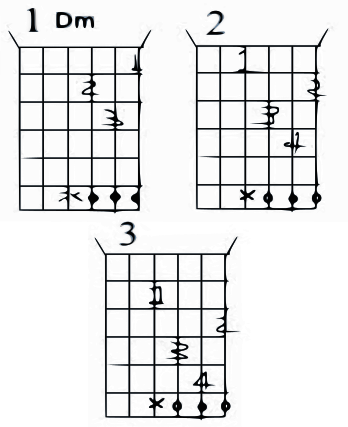 1 Dm
1
2
3
x
2
1
2
3
4
x
3
1
2
3
4
x